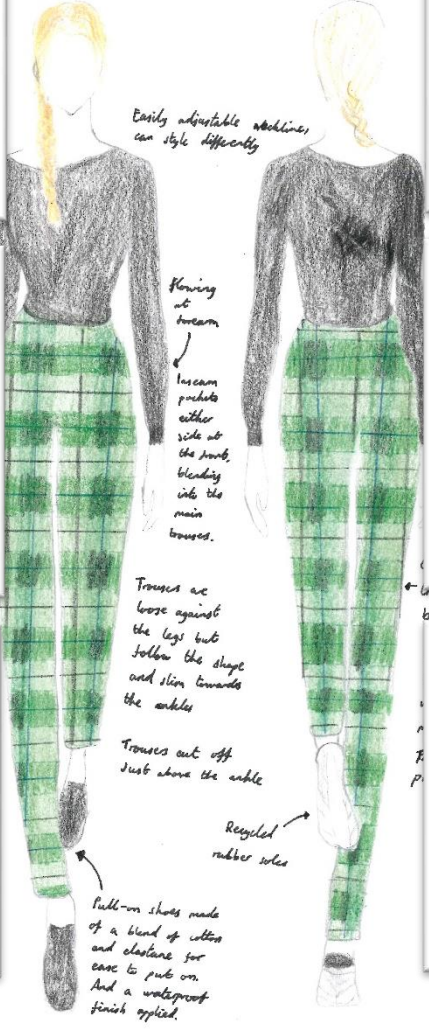 Easily adjustable necklines,
can style differently
Flowing
at
forearm
Inseam
pockets
either
side at
the front,
blending
into the
main
trouses.
Trouses are
loose against
the legs but
follow the shape
and slim towards
the ankles
Trouses cut off
just above the ankle
Recycled
rubber soles
Pull-on shoes made
of a blend of cotton
and elastane for
ease to put on.
And a waterproof
finish applied.